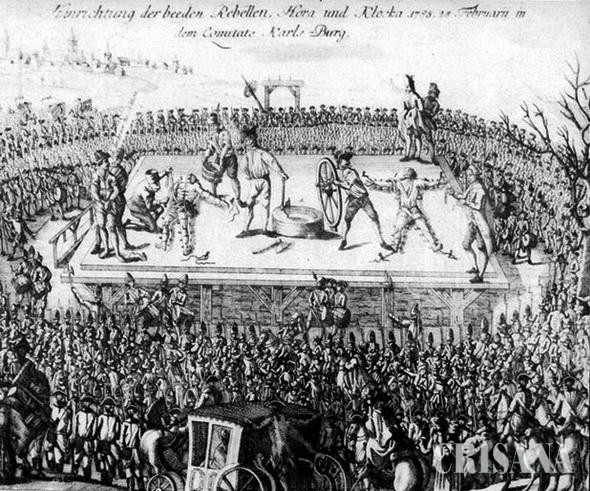 Hinrichtung der beeden Rebellen, Hora und Kloska 1785. 28 Februarii in
dem Comitate Karls-Burg.
CRISANA